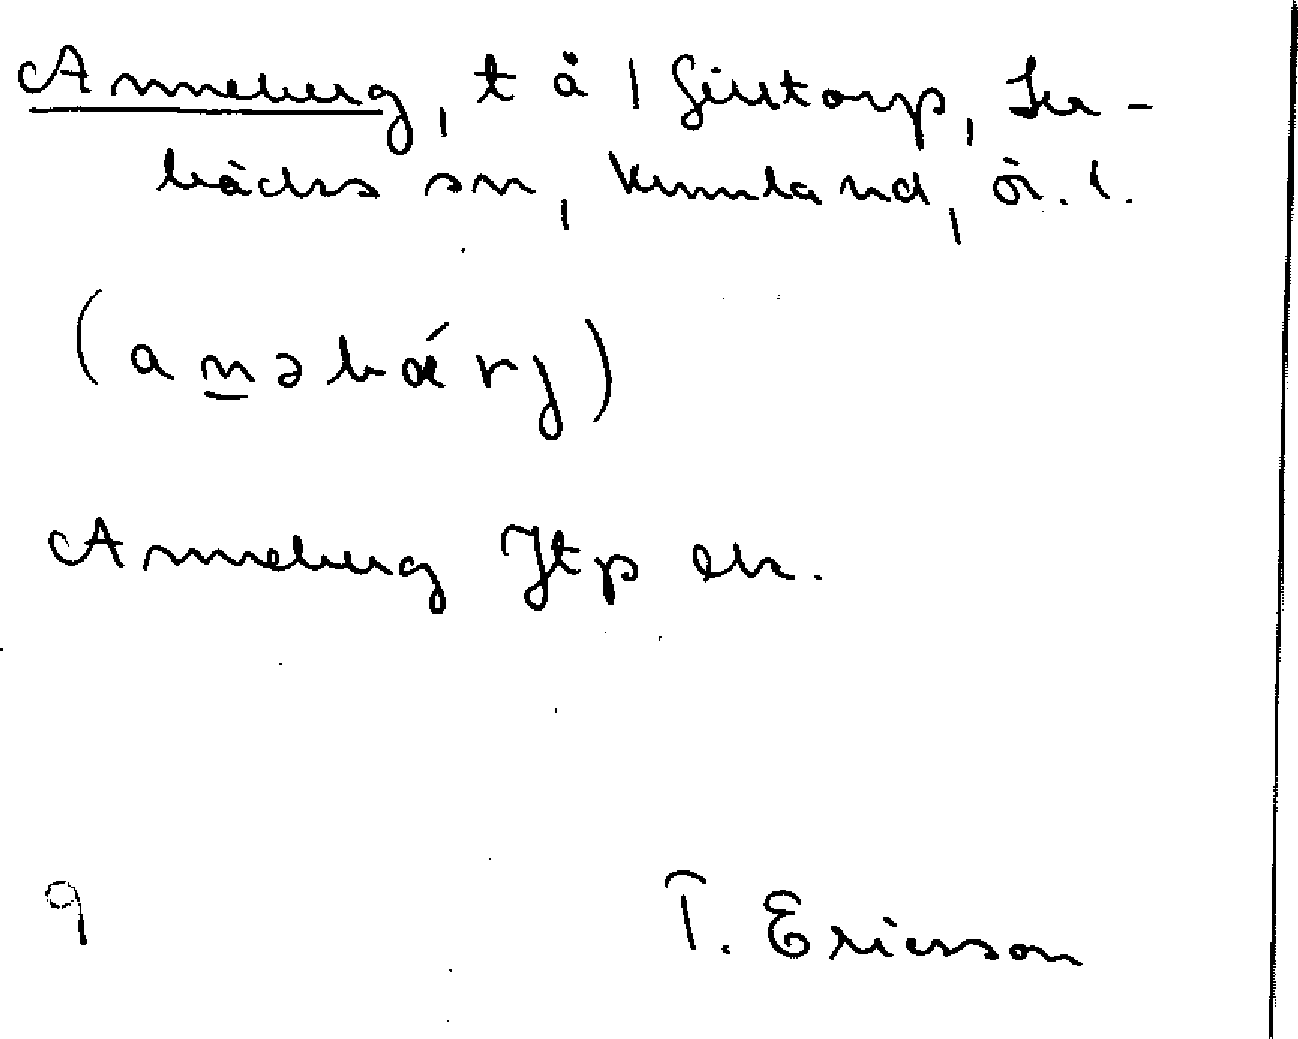 Anneberg, t å 1 , Ler-
bäcks sn, Kumla hd, Ör. l.
(anəbǽrj)
Anneberg Jtp ek.
9
T. Ericsson